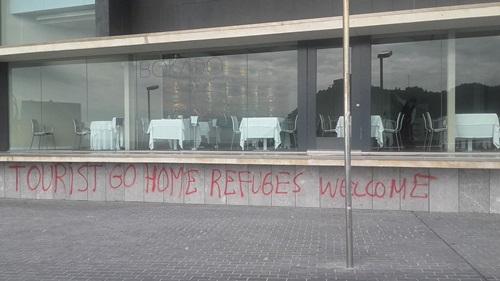 BOKADO
TOURIST GO HOME REFUGES WELCOME